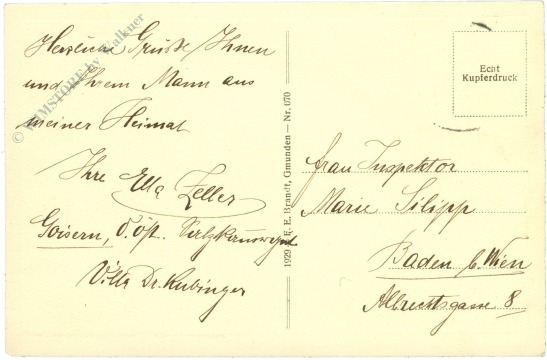 Herzliche Grüße Ihnen
und Ihrem Mann aus
meiner Heimat
Ihre Ella Zeller
Goisern, O. Öst. Salzkammergut
Villa Dr. Kubinger
© by Kalkner
1929 E. Brandt, Gmunden — Nr. 070
Echt
Kupferdruck
Frau Inspektor
Marie Silipp
Baden b. Wien
Albrechtsgasse 8